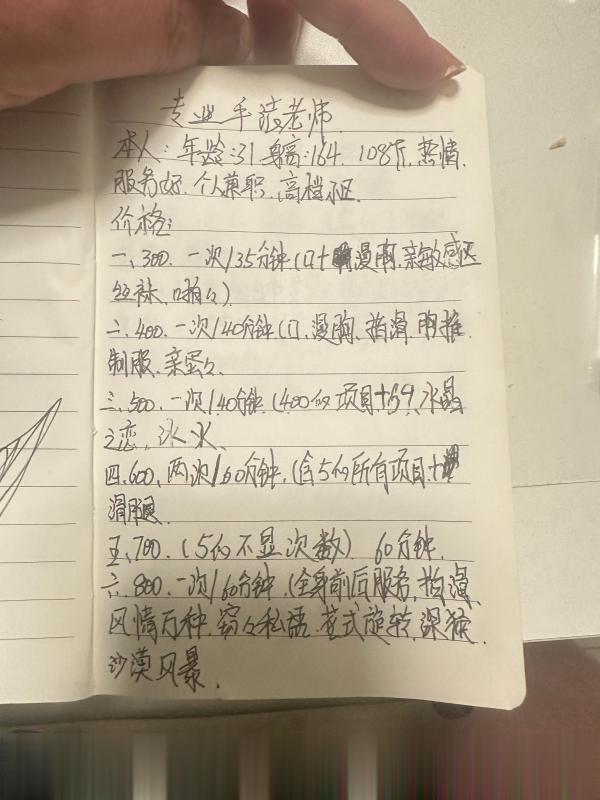 专业手漫老师
本人:年龄:31 身高:164. 108斤,热情.
服务好.个人兼职,高档小区.
价格:
一、300.一次/35分钟(口+漫胸,亲敏感区
丝袜、啪々)
二、400.一次/40分钟(口、漫胸、指滑.胸推.
制服、亲蛋々.
三、500.一次/40分钟(400的项目+59,水晶
之恋,冰火、
四.600、两次/60分钟,(含5的所有项目+
滑腿.
五、700.(5的不显次数) 60分钟.
六、800.一次/60分钟(全身前后服务,指滑
风情万种,窃々私语.花式旋转,深猴.
沙漠风暴.